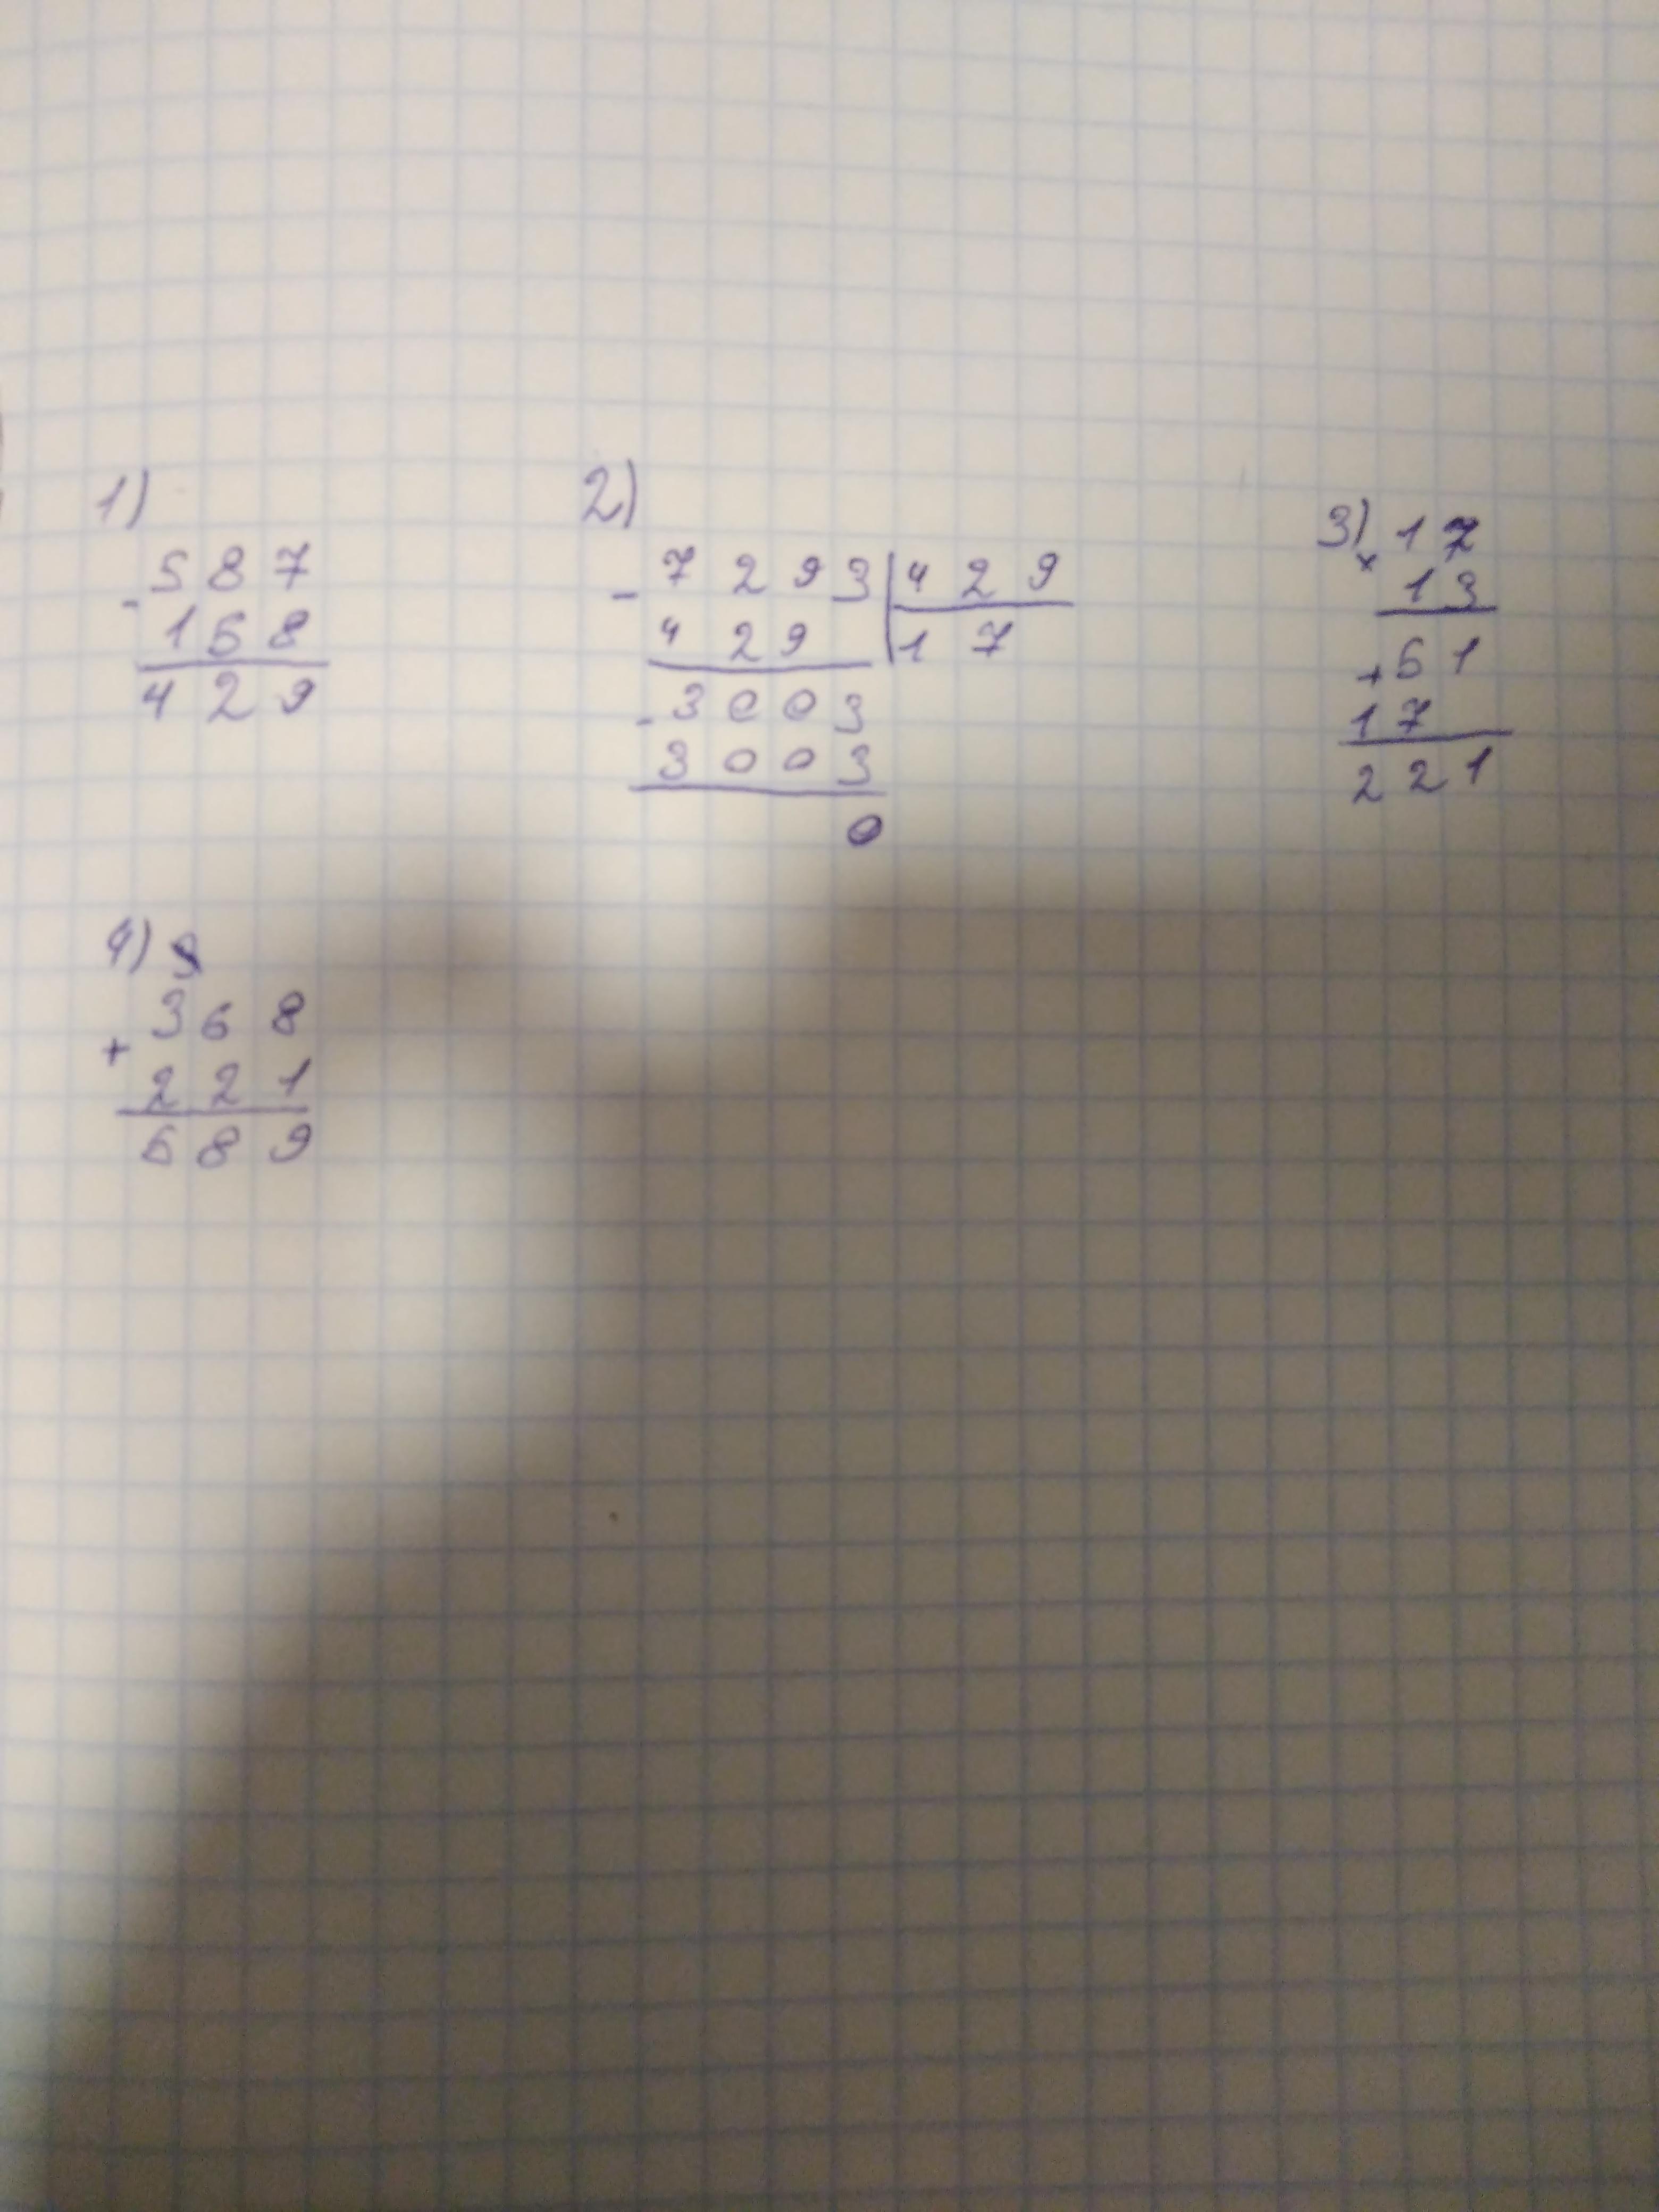 1)
- 587
158
429
2)
- 7293 | 429
429 | 17
- 3003
3003
0
3) 17
× 13
+ 51
17
221
4)
+ 368
221
589